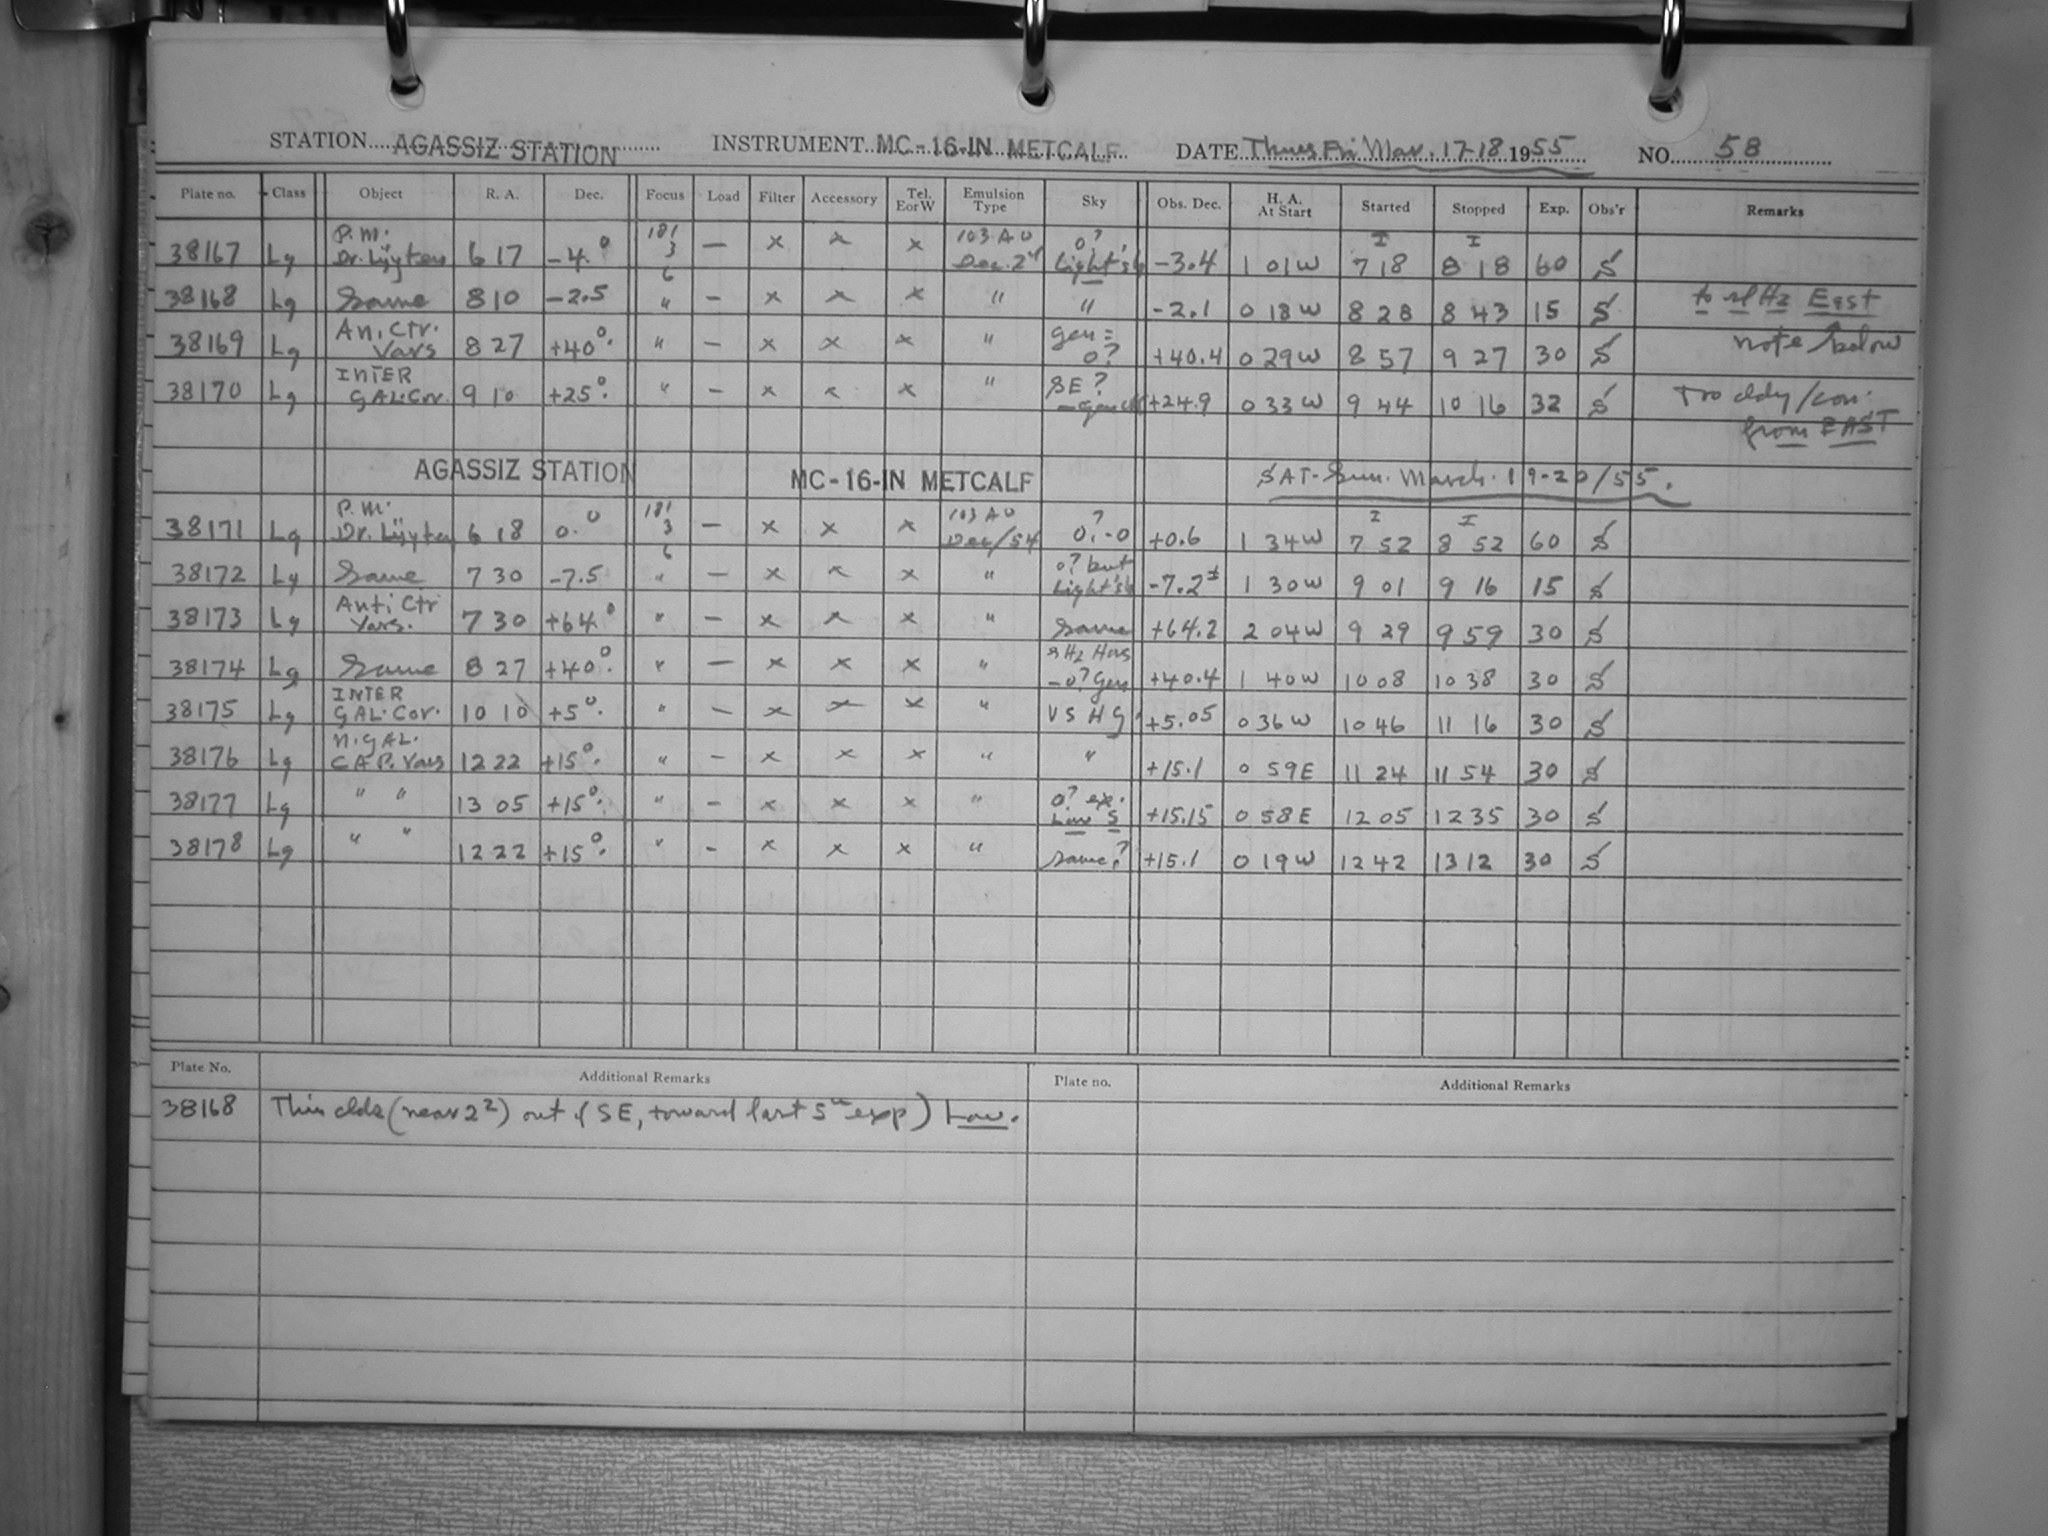 STATION AGASSIZ STATION INSTRUMENT MC-16-IN METCALF DATE Thurs Fri Mar. 17-18 1955 NO. 58
Plate no. Class Object R. A. Dec. Focus Load Filter Accessory Tel. E or W Emulsion Type Sky Obs. Dec. H. A. At Start Started Stopped Exp. Obs'r Remarks
38167 Lg P.M. Dr. Lüyten 6 17 -4.° 181 3 6 — x x x 103 AO Dec. 0? Light's -3.4 1 01 W I 7 18 I 8 18 60 S
38168 Lg Same 8 10 -2.5 " - x x x " " -2.1 0 18 W 8 28 8 43 15 S to sl Hz East
38169 Lg An. Ctr. Vars 8 27 +40°. " - x x x " gen = 0? +40.4 0 29 W 8 57 9 27 30 S note below
38170 Lg INTER GAL. Cor. 9 10 +25°. " - x x x " SE? +24.9 0 33 W 9 44 10 16 32 S from EAST
AGASSIZ STATION MC-16-IN METCALF SAT-Sun. March. 19-20/55.
38171 Lg P.M. Dr. Lüyten 6 18 0.° 181 3 6 — x x x 103 AO Dec/54 0?-0 +0.6 1 34 W I 7 52 I 8 52 60 S
38172 Lg Same 7 30 -7.5 " — x x x " 0? but Light's -7.2± 1 30 W 9 01 9 16 15 S
38173 Lg Anti Ctr Vars. 7 30 +64.° " — x x x " Same +64.2 2 04 W 9 29 9 59 30 S
38174 Lg Same 8 27 +40°. " — x x x " -0? Gen +40.4 1 40 W 10 08 10 38 30 S
38175 Lg INTER GAL. Cor. 10 10 +5°. " — x x x " VS Hg. +5.05 0 36 W 10 46 11 16 30 S
38176 Lg N. GAL. CAP. Vars 12 22 +15°. " - x x x " " +15.1 0 59 E 11 24 11 54 30 S
38177 Lg " " 13 05 +15°. " - x x x " 0? ex. Low S +15.15 0 58 E 12 05 12 35 30 S
38178 Lg " " 12 22 +15°. " - x x x " Same? +15.1 0 19 W 12 42 13 12 30 S
Plate No. Additional Remarks Plate no. Additional Remarks
38168 Thin clds (near 2²) out of SE, toward last 5ᵐ exp) Low.